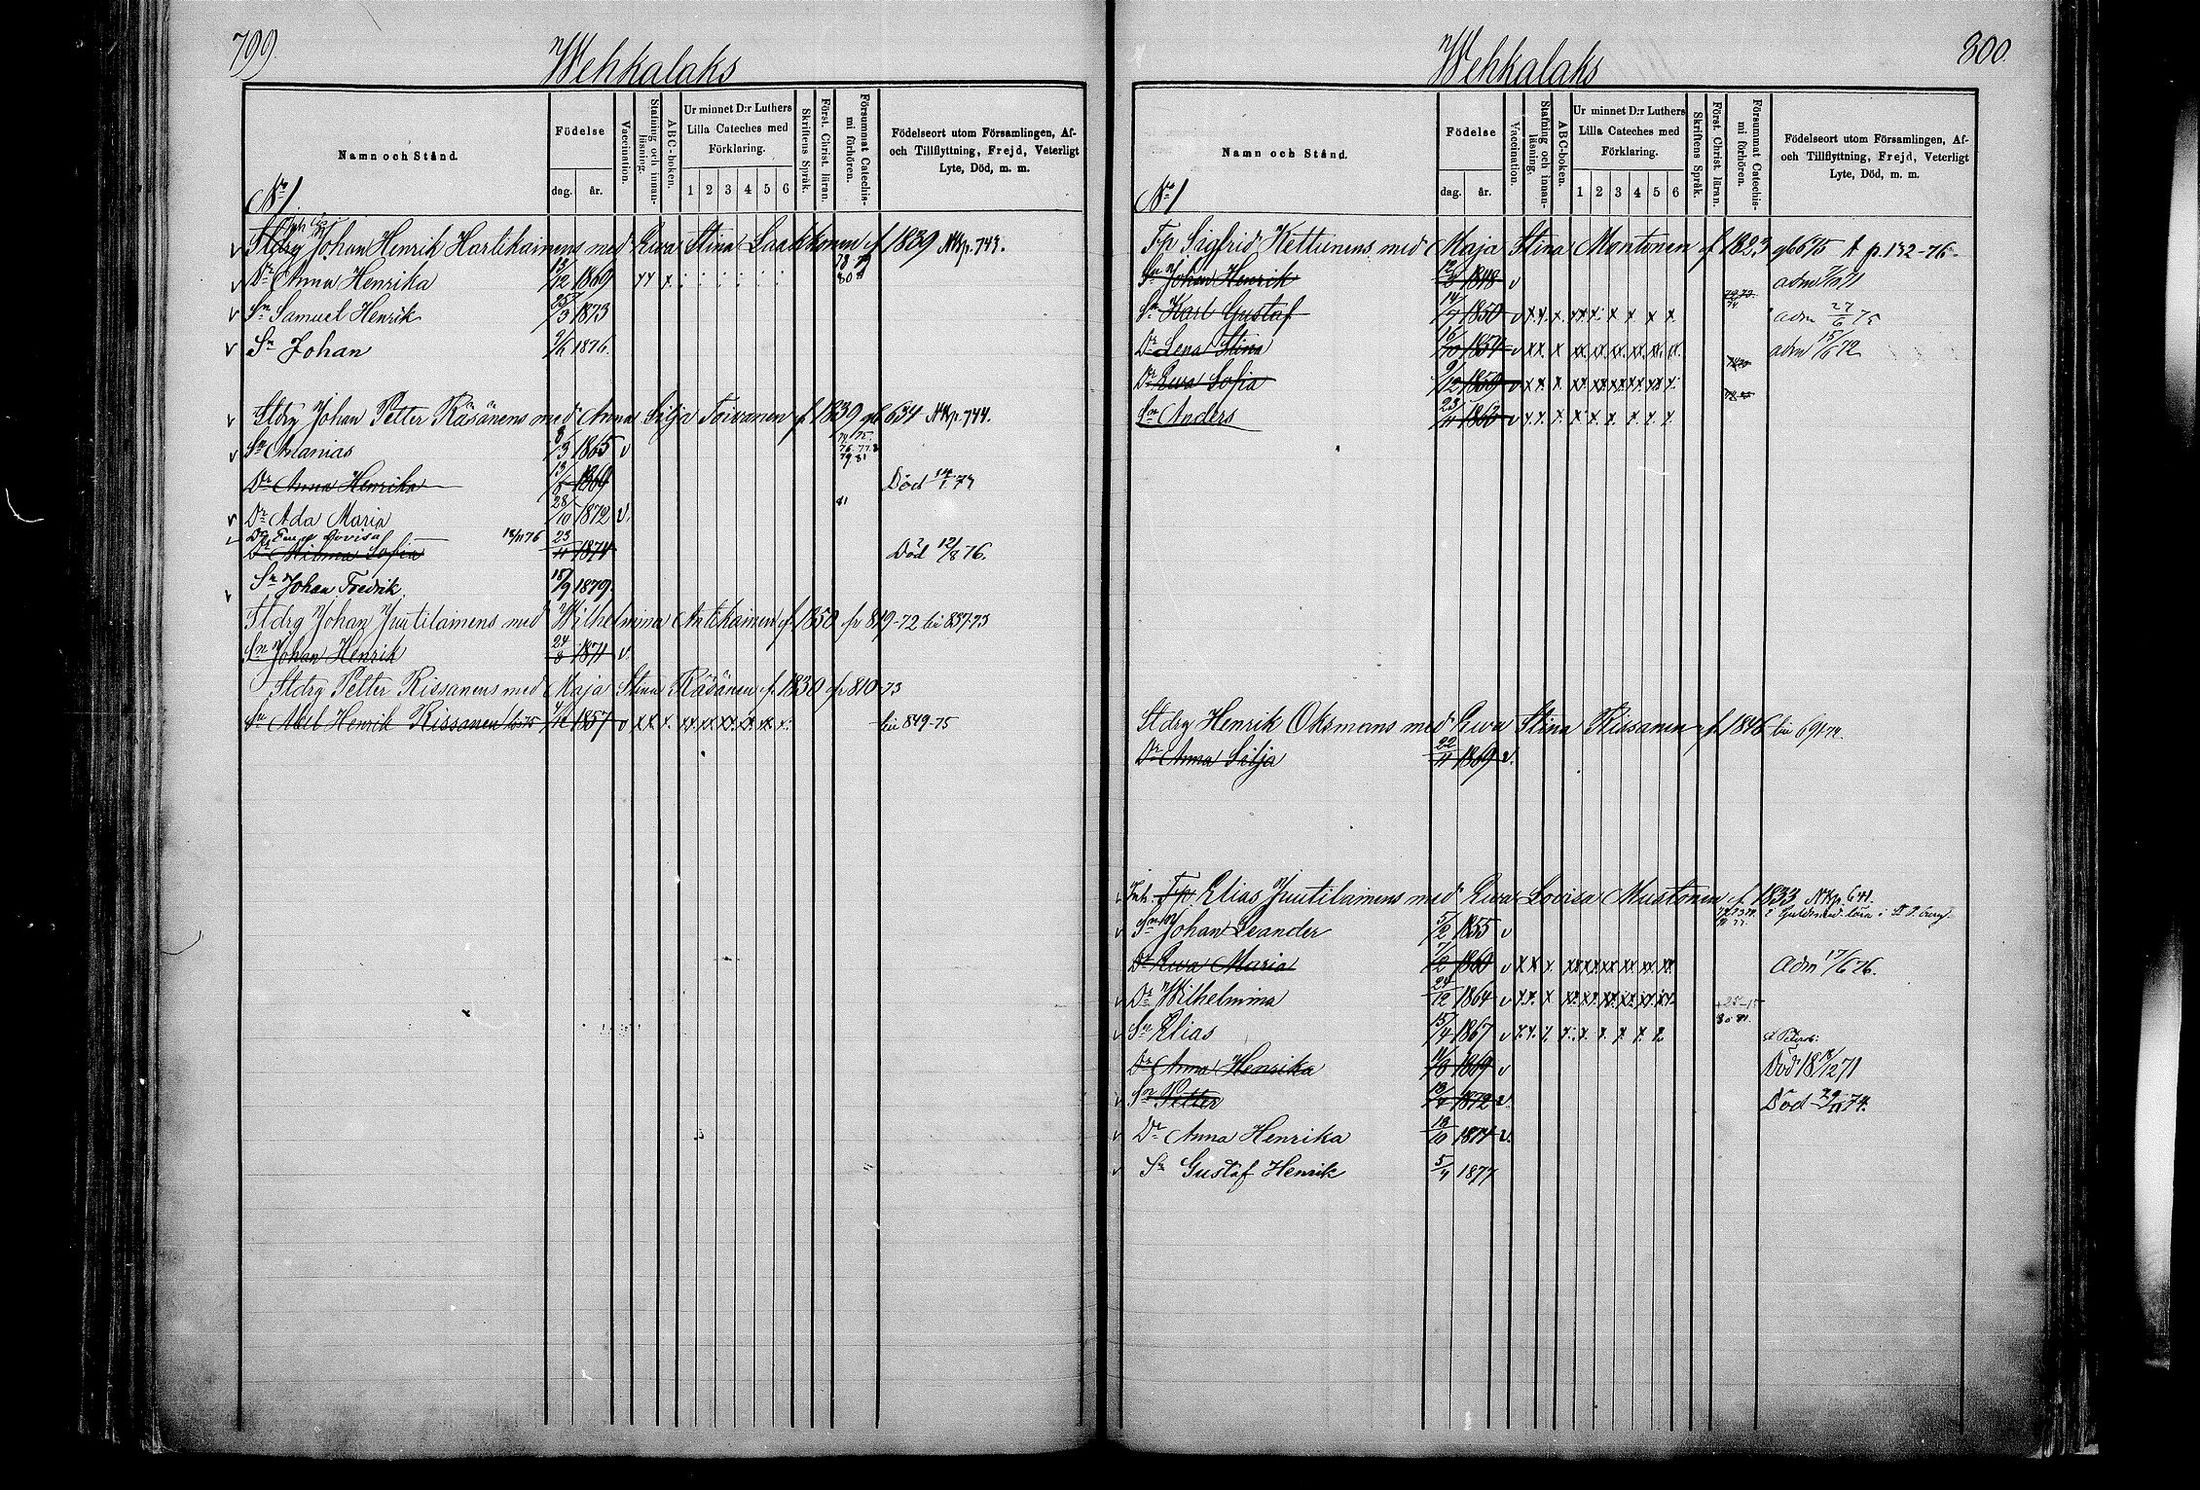 799.
Wehkalaks
Namn och Stånd.
Födelse
dag.
år.
Vaccination.
Stafning och innan-
läsning.
ABC-boken.
Ur minnet D:r Luthers
Lilla Cateches med
Förklaring.
1 2 3 4 5 6
Skriftens Språk.
Först. Christ. läran.
Försummat Catechis-
mi förhören.
Födelseort utom Församlingen, Af-
och Tillflyttning, Frejd, Veterligt
Lyte, Död, m. m.
No 1
Stdrg Johan Henrik Hartikainens med Ewa Stina Laakkonen f 1839 NKp. 743.
v Dr Anna Henrika 13/12 1869 78 79 80
v Sn Samuel Henrik 25/3 1873
v Sn Johan 1876.
v Stdrg Johan Petter Räsänens med Anna Silja Toivanen f 1839 634 NKp. 744.
v Sn Ananias 8/3 1865 v 76 77 79 81
Dr Anna Henrika 1869 Död 14/1 73
v Dr Ada Maria 28/10 1872 v. 81
Dr Lovisa 18/11 76
Dr Wilma Sofia 23/11 1874 Död 12/8 76.
v Sn Johan Fredrik 18/9 1879.
Stdrg Johan Juutilainens med Wilhelmina Antikainen f 1850 fr 819-72 857-73
Sn Johan Henrik 24/8 1871 v.
Stdrg Petter Rissanens med Maja Stina Räsänen f. 1830 fr 810-73
Sn Abel Henrik Rissanen 1857 v xx x. xx xx xx xx xx x. 849-75
800.
Wehkalaks
Namn och Stånd.
Födelse
dag.
år.
Vaccination.
Stafning och innan-
läsning.
ABC-boken.
Ur minnet D:r Luthers
Lilla Cateches med
Förklaring.
1 2 3 4 5 6
Skriftens Språk.
Först. Christ. läran.
Försummat Catechis-
mi förhören.
Födelseort utom Församlingen, Af-
och Tillflyttning, Frejd, Veterligt
Lyte, Död, m. m.
No 1
Tp Sigfrid Kettunens med Maja Stina Montonen f 1823 675 p. 132-76
Sn Johan Henrik 1848 v adm 71
Sn Karl Gustaf 14/7 1850 v x x. x. xx x. x x x x. adm 27/6 75
Dr Lena Stina 16/10 1854 v xx. x xx. xx. xx. xx. xx. xx. adm 15/6 72
Dr Ewa Sofia 9/12 1859 v x x. x xx xx xx xx xx x.
Sn Anders 23/11 1863 v x. x. x. x. x. x. x. x. x.
Stdrg Henrik Oksmans med Ewa Stina Rissanen f. 1846
Dr Anna Silja 22/11 1869 v.
Inh. Tp. Elias Juutilainens med Ewa Lovisa Mustonen f. 1833 NKp. 641.
v Sn Johan Leander 5/2 1855 v
Dr Ewa Maria 7/2 1860 v x x x. xx xx xx xx xx xx Adm 17/6 76.
v Dr Wilhelmina 24/12 1864 v x x. x xx. xx. xx. xx. xx. xx. 80 81.
v Sn Elias 15/4 1867 v x. x. x. x. x. x. x. x. x. St Petersb:
Dr Anna Henrika 1869 v Död 18/12 71
v Sn Petter 1872 v. Död 74.
v Dr Anna Henrika 13/10 1874 v.
v Sn Gustaf Henrik 5/4 1877